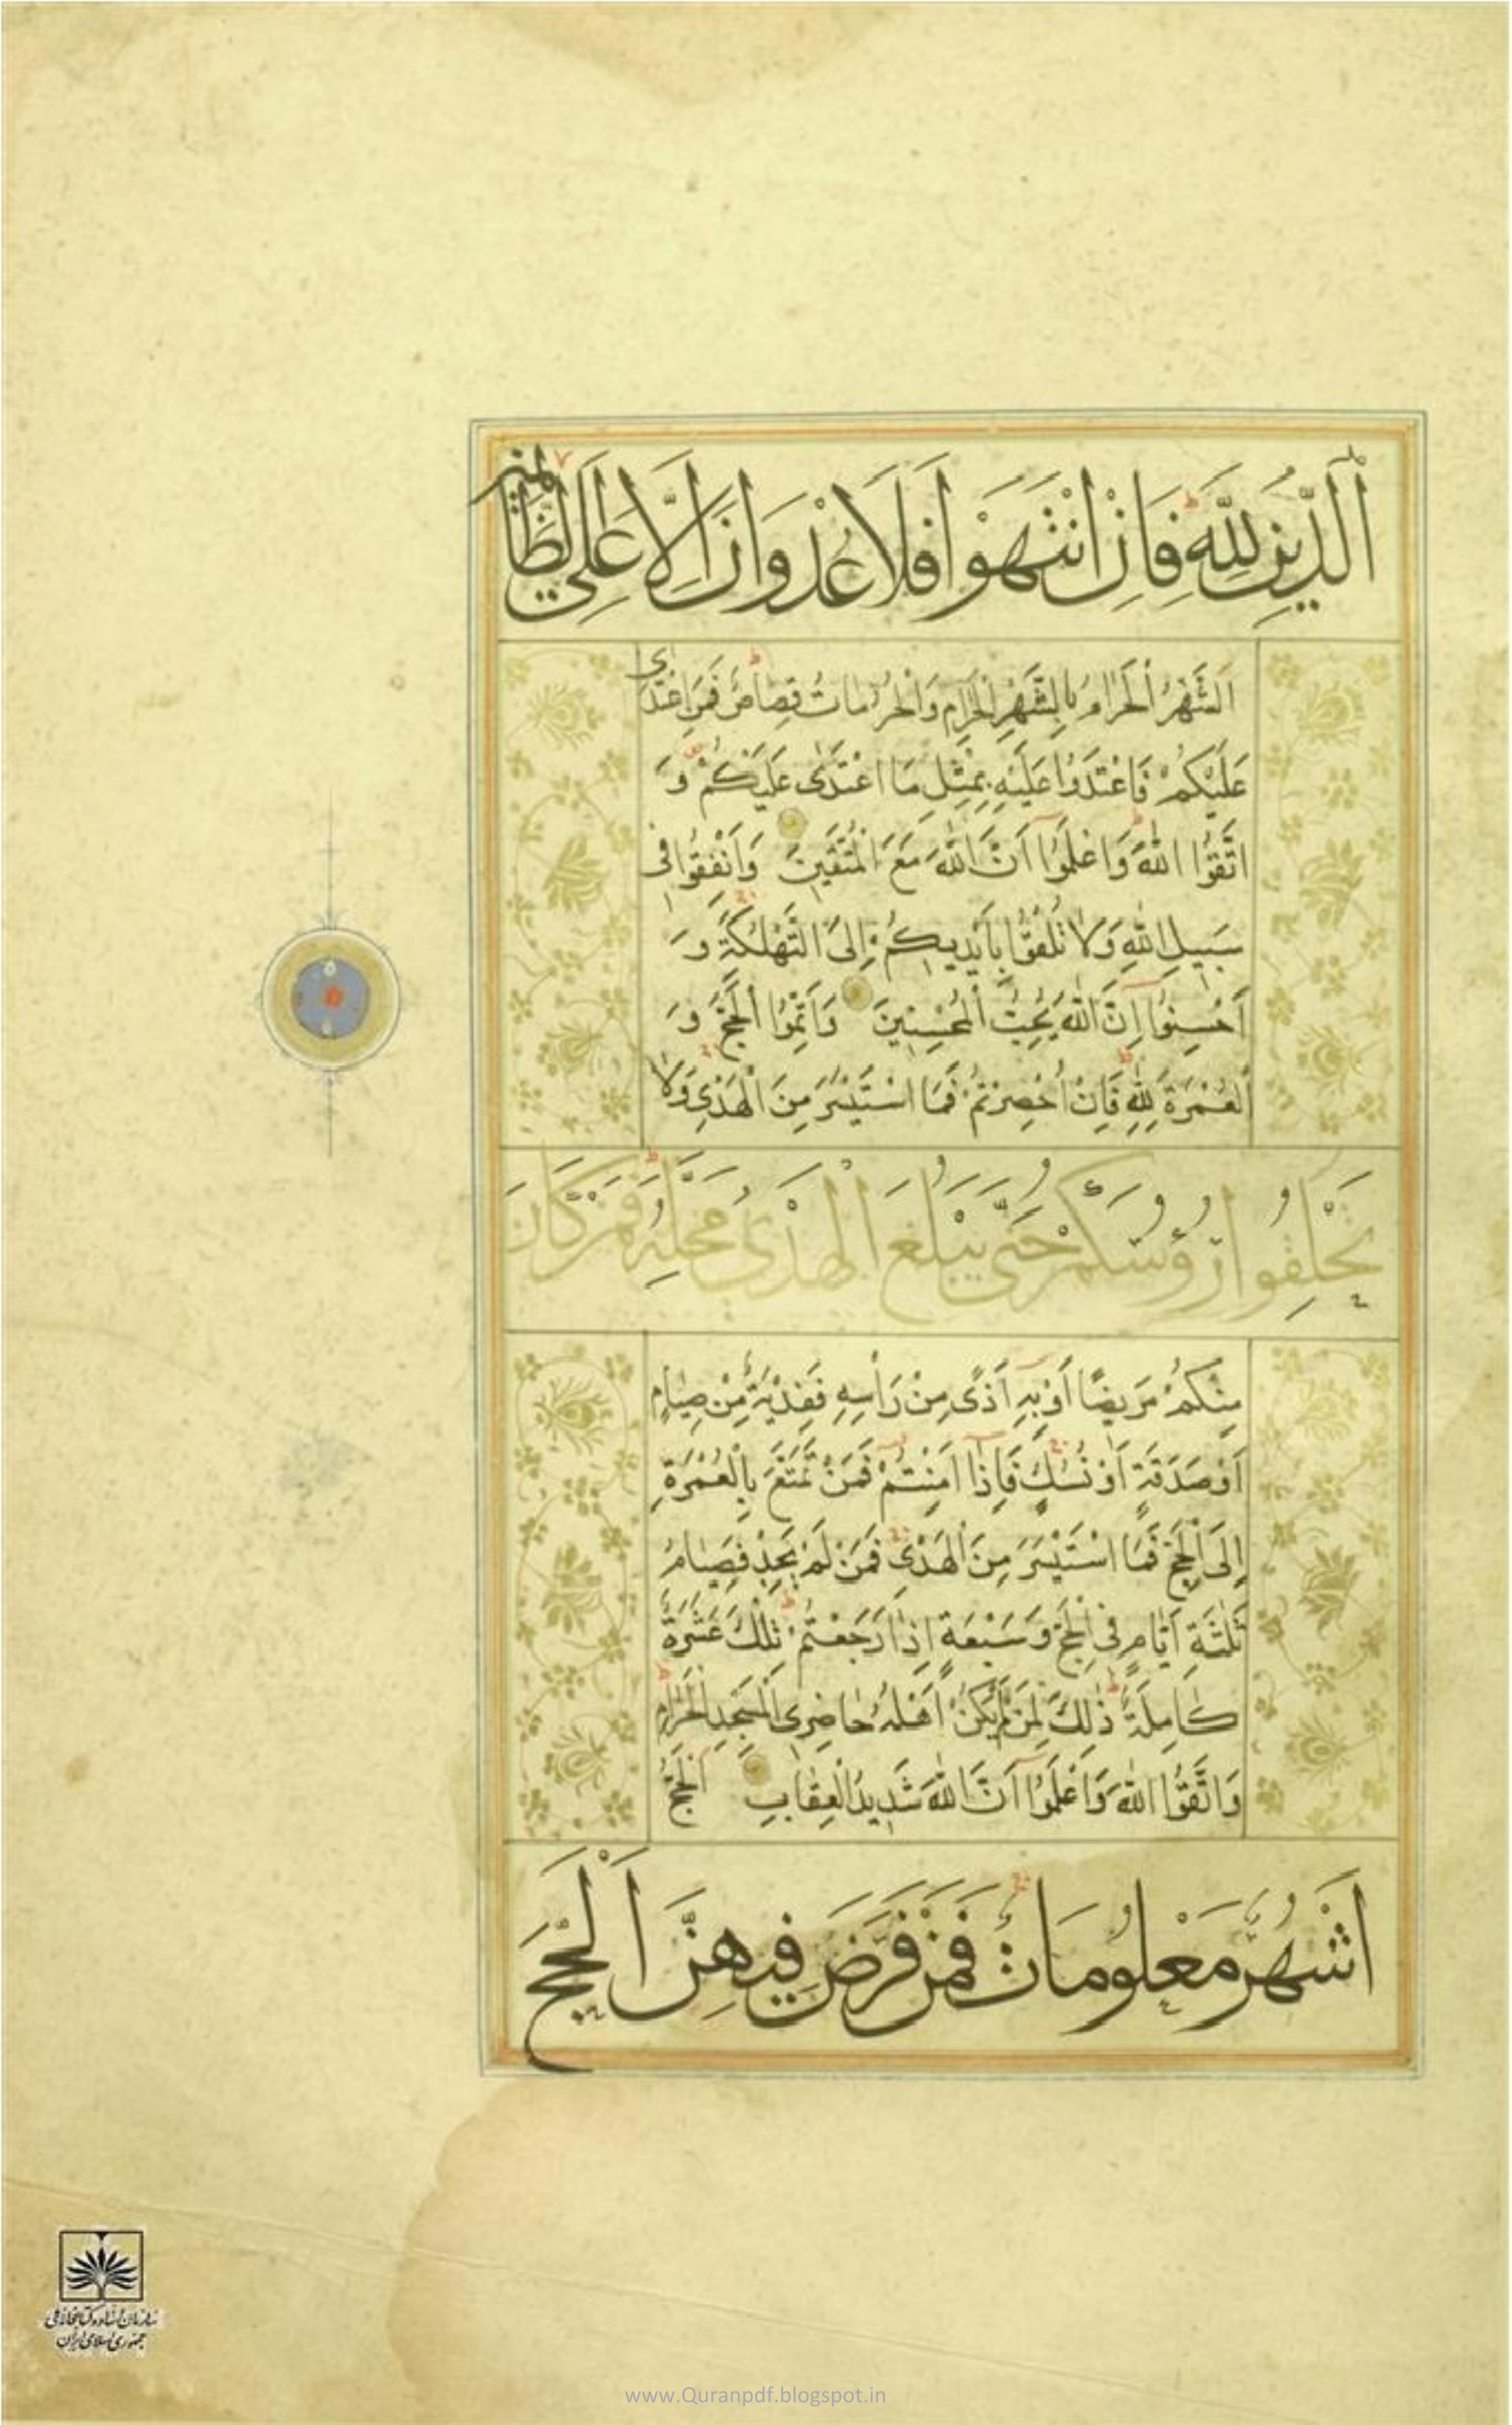 اَلدِّينُ لِلّٰهِ فَاِنِ انْتَهَوْا فَلَا عُدْوَانَ اِلَّا عَلَى الظَّالِمِينَ
اَلشَّهْرُ الْحَرَامُ بِالشَّهْرِ الْحَرَامِ وَالْحُرُمَاتُ قِصَاصٌ فَمَنِ اعْتَدٰى
عَلَيْكُمْ فَاعْتَدُوا عَلَيْهِ بِمِثْلِ مَا اعْتَدٰى عَلَيْكُمْ وَ
اتَّقُوا اللّٰهَ وَاعْلَمُوا اَنَّ اللّٰهَ مَعَ الْمُتَّقِينَ وَاَنْفِقُوا فِى
سَبِيلِ اللّٰهِ وَلَا تُلْقُوا بِاَيْدِيكُمْ اِلَى التَّهْلُكَةِ وَ
اَحْسِنُوا اِنَّ اللّٰهَ يُحِبُّ الْمُحْسِنِينَ وَاَتِمُّوا الْحَجَّ وَ
الْعُمْرَةَ لِلّٰهِ فَاِنْ اُحْصِرْتُمْ فَمَا اسْتَيْسَرَ مِنَ الْهَدْىِ وَلَا
تَحْلِقُوا رُؤُسَكُمْ حَتّٰى يَبْلُغَ الْهَدْىُ مَحِلَّهُ فَمَنْ كَانَ
مِنْكُمْ مَرِيضًا اَوْ بِهِ اَذًى مِنْ رَأْسِهِ فَفِدْيَةٌ مِنْ صِيَامٍ
اَوْ صَدَقَةٍ اَوْ نُسُكٍ فَاِذَا اَمِنْتُمْ فَمَنْ تَمَتَّعَ بِالْعُمْرَةِ
اِلَى الْحَجِّ فَمَا اسْتَيْسَرَ مِنَ الْهَدْىِ فَمَنْ لَمْ يَجِدْ فَصِيَامُ
ثَلٰثَةِ اَيَّامٍ فِى الْحَجِّ وَسَبْعَةٍ اِذَا رَجَعْتُمْ تِلْكَ عَشَرَةٌ
كَامِلَةٌ ذٰلِكَ لِمَنْ لَمْ يَكُنْ اَهْلُهُ حَاضِرِى الْمَسْجِدِ الْحَرَامِ
وَاتَّقُوا اللّٰهَ وَاعْلَمُوا اَنَّ اللّٰهَ شَدِيدُ الْعِقَابِ اَلْحَجُّ
اَشْهُرٌ مَعْلُومَاتٌ فَمَنْ فَرَضَ فِيهِنَّ الْحَجَّ
سازمان اسناد و کتابخانه ملی
جمهوری اسلامی ایران
www.Quranpdf.blogspot.in